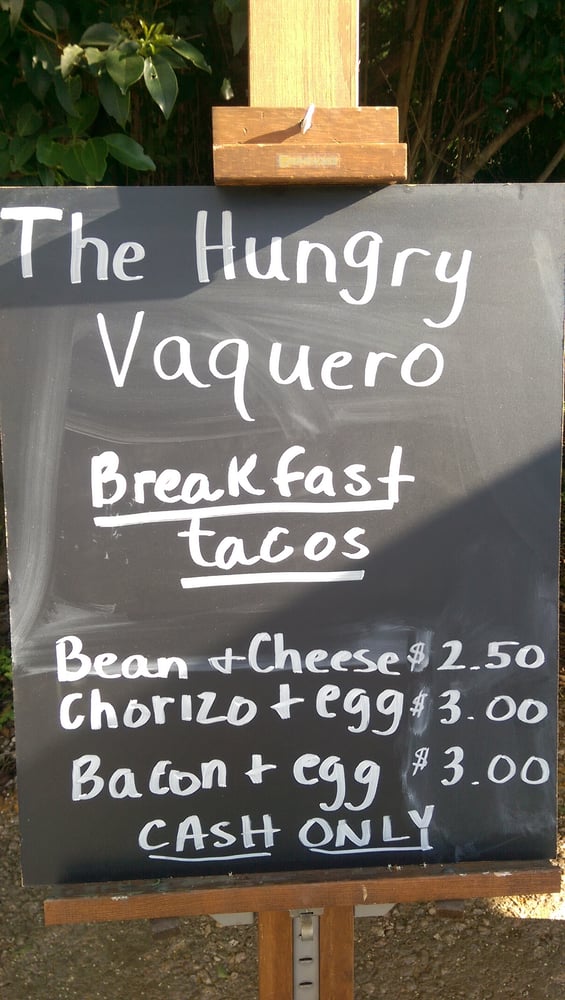 The Hungry
Vaquero
Breakfast
tacos
Bean + Cheese $ 2.50
Chorizo + egg $ 3.00
Bacon + egg $ 3.00
CASH ONLY